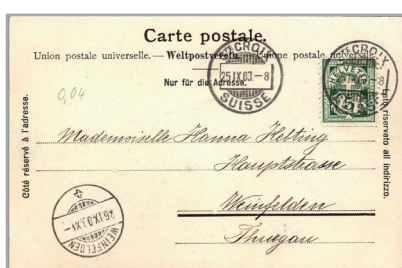 Carte postale.
Union postale universelle. — Weltpostverein. — Unione postale universale.
Nur für die Adresse.
Côté réservé à l'adresse.
Lato riservato all indirizzo.
0,04
STE CROIX
25.IX.03.–8
SUISSE
STE CROIX
–8
HELVETIA
Mademoiselle Hanna Helbing
Hauptstrasse
Weinfelden
Thurgau
WEINFELDEN
26.IX.03.XI–